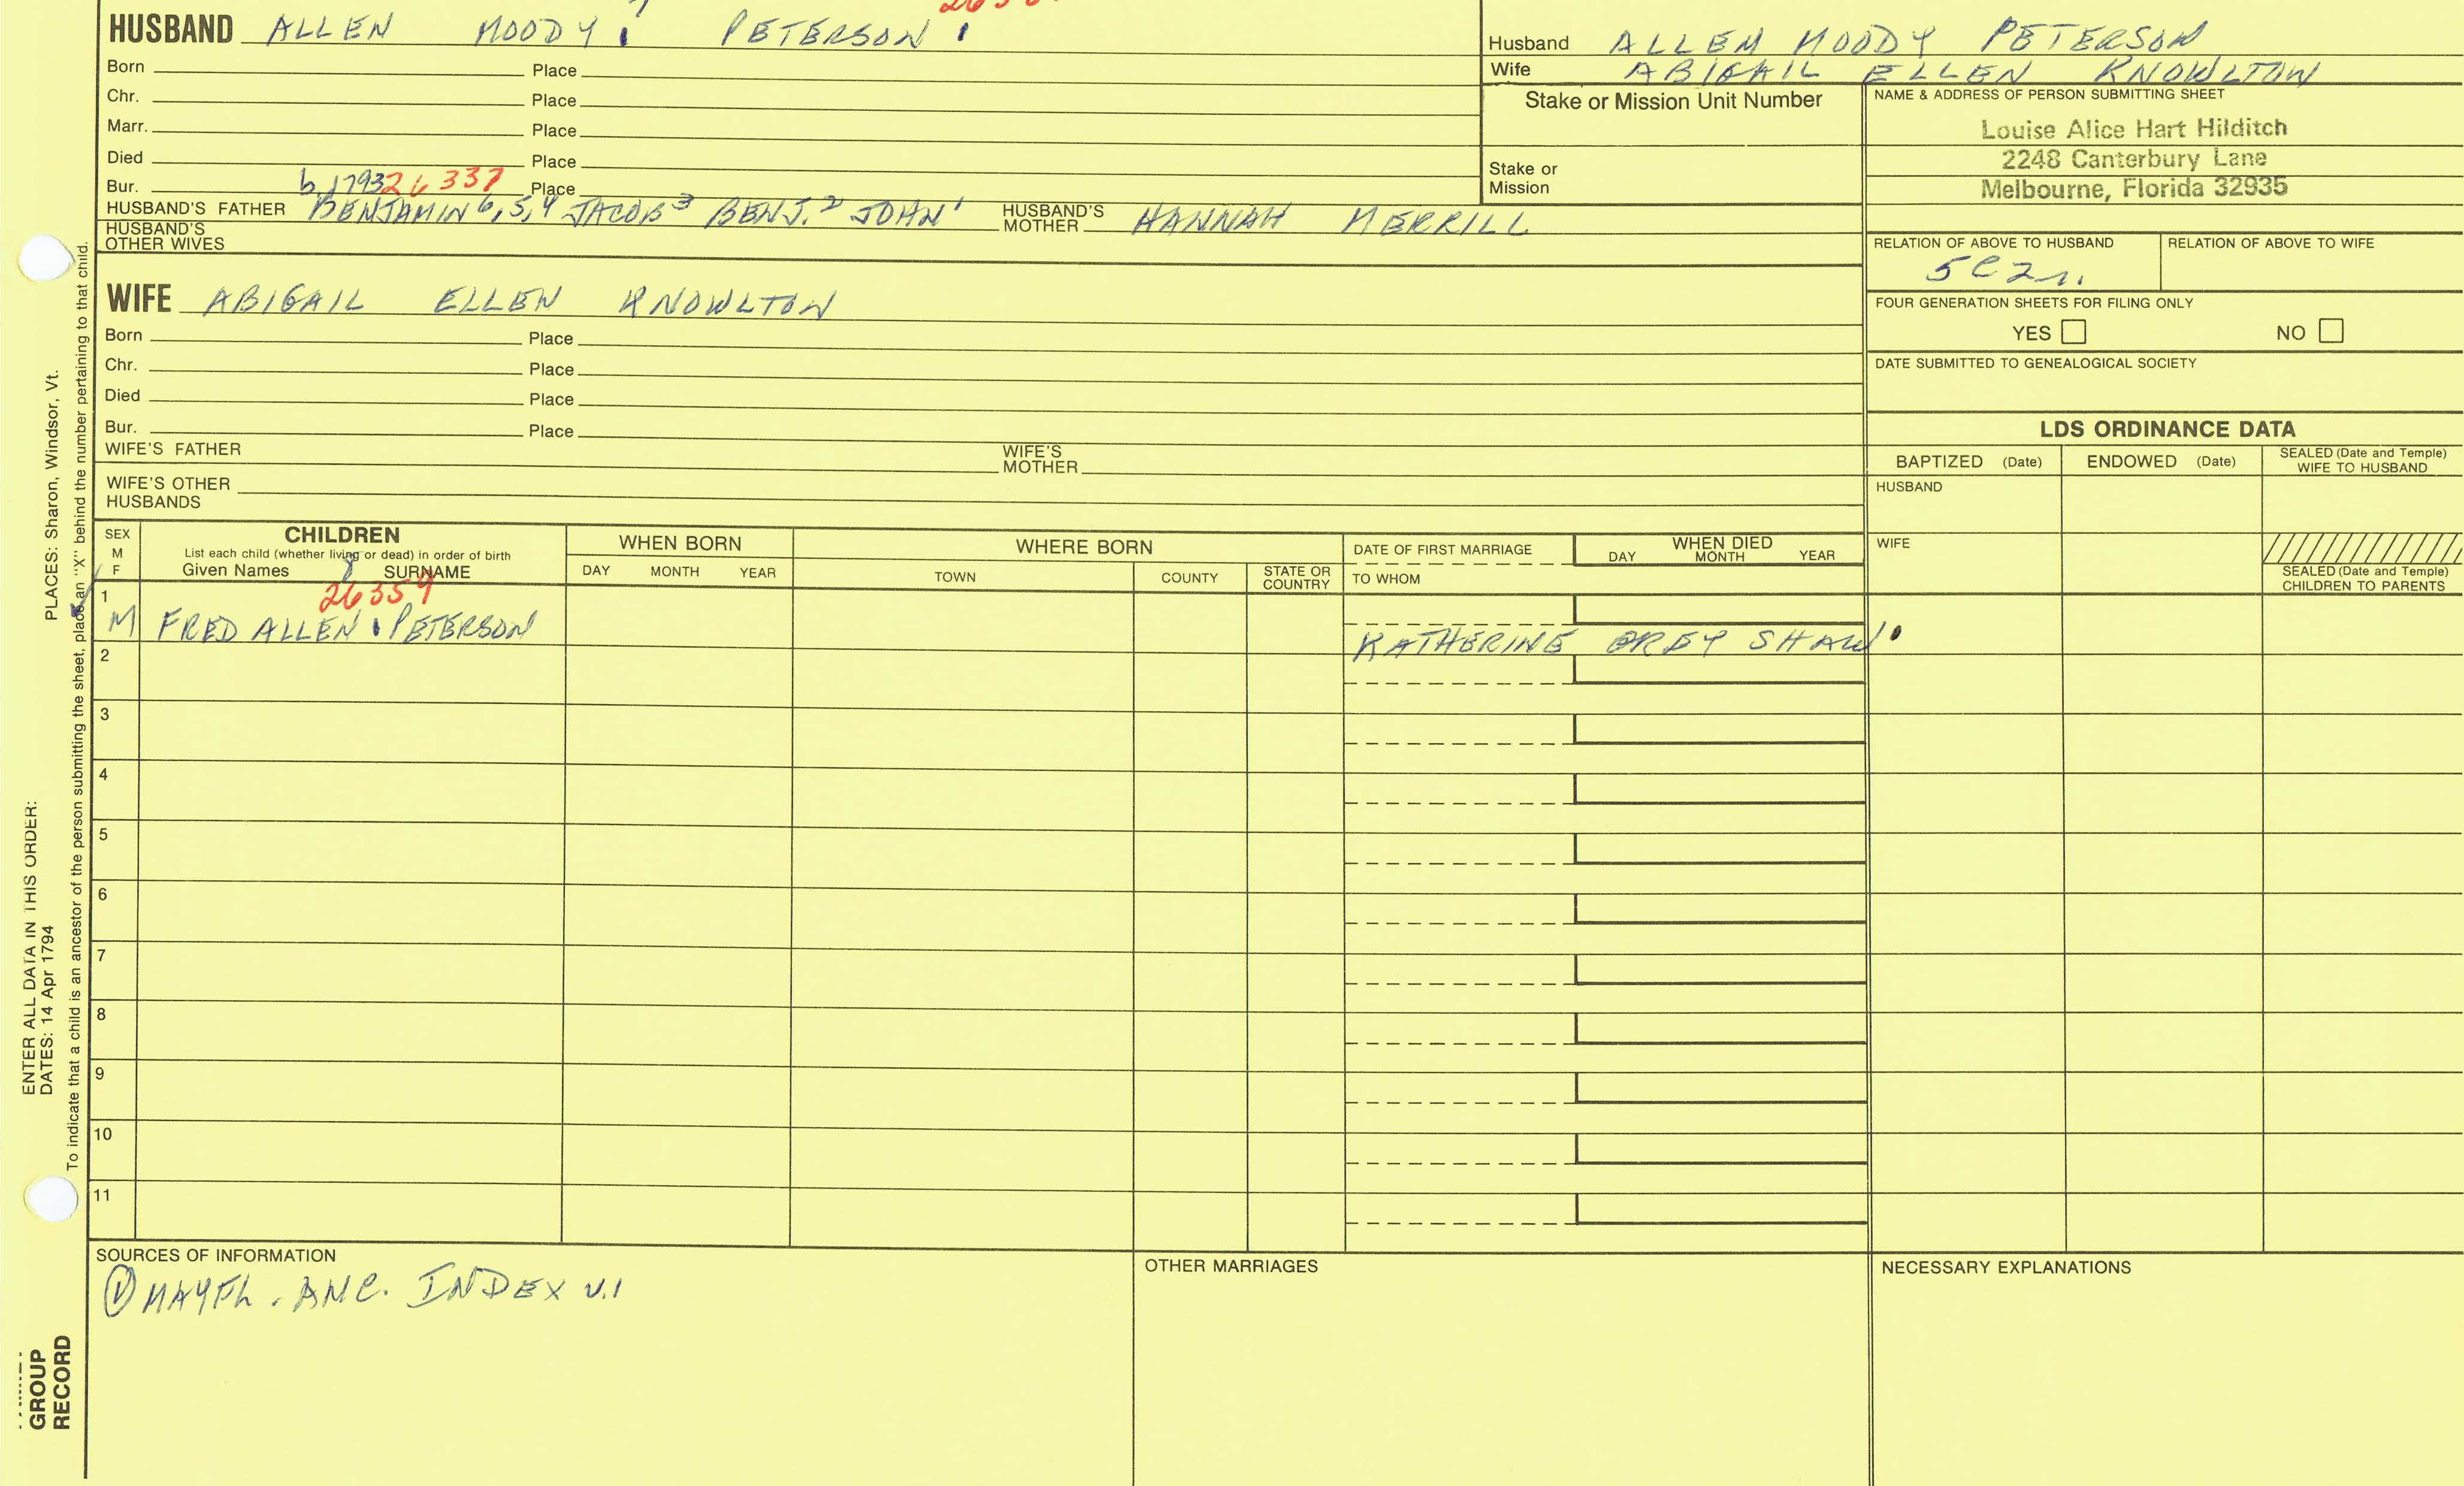 HUSBAND ALLEN MOODY PETERSON
Born Place
Chr. Place
Marr. Place
Died Place
Bur. b. 1793 26337 Place
HUSBAND'S FATHER BENJAMIN 6,5,4 JACOB 3 BENJ. 2 JOHN 1 HUSBAND'S MOTHER HANNAH MERRILL
HUSBAND'S OTHER WIVES
WIFE ABIGAIL ELLEN KNOWLTON
Born Place
Chr. Place
Died Place
Bur. Place
WIFE'S FATHER WIFE'S MOTHER
WIFE'S OTHER HUSBANDS
Husband ALLEN MOODY PETERSON
Wife ABIGAIL ELLEN KNOWLTON
Stake or Mission Unit Number
Stake or Mission
NAME & ADDRESS OF PERSON SUBMITTING SHEET
Louise Alice Hart Hilditch
2248 Canterbury Lane
Melbourne, Florida 32935
RELATION OF ABOVE TO HUSBAND RELATION OF ABOVE TO WIFE
5C2r.
FOUR GENERATION SHEETS FOR FILING ONLY
YES NO
DATE SUBMITTED TO GENEALOGICAL SOCIETY
LDS ORDINANCE DATA
BAPTIZED (Date) ENDOWED (Date) SEALED (Date and Temple) WIFE TO HUSBAND
HUSBAND
WIFE
SEALED (Date and Temple) CHILDREN TO PARENTS
SEX M F
CHILDREN
List each child (whether living or dead) in order of birth
Given Names 8 SURNAME
WHEN BORN
DAY MONTH YEAR
WHERE BORN
TOWN COUNTY STATE OR COUNTRY
DATE OF FIRST MARRIAGE
TO WHOM
WHEN DIED
DAY MONTH YEAR
1 26359
M FRED ALLEN PETERSON KATHERINE GREY SHAW
2
3
4
5
6
7
8
9
10
11
SOURCES OF INFORMATION
1 MAYFL. ANC. INDEX V.1
OTHER MARRIAGES
NECESSARY EXPLANATIONS
ENTER ALL DATA IN THIS ORDER:
DATES: 14 Apr 1794 PLACES: Sharon, Windsor, Vt.
To indicate that a child is an ancestor of the person submitting the sheet, place an "X" behind the number pertaining to that child.
GROUP
RECORD